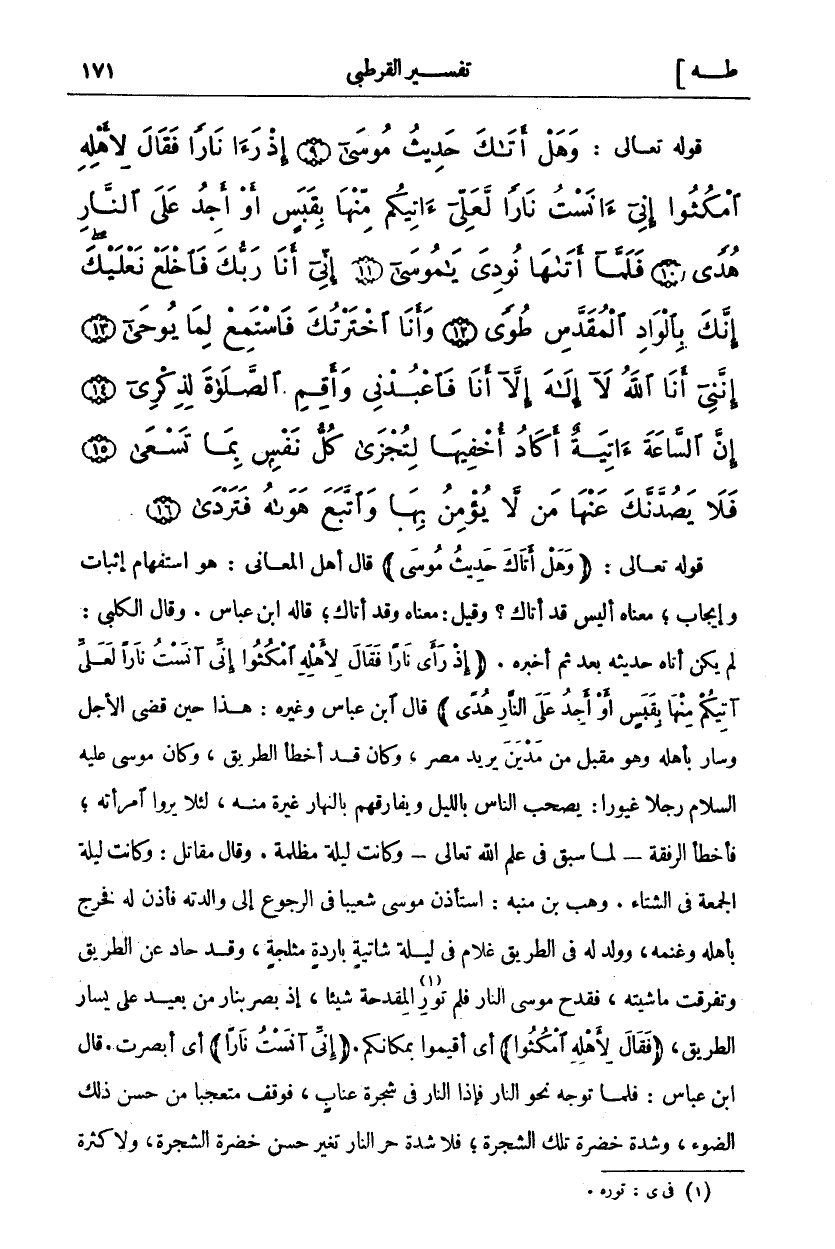 طـــه ] تفســـير القرطبى ١٧١
قوله تعـالى : وَهَلْ أَتَىٰكَ حَدِيثُ مُوسَىٰٓ ﴿٩﴾ إِذْ رَءَا نَارًا فَقَالَ لِأَهْلِهِ
ٱمْكُثُوٓا إِنِّىٓ ءَانَسْتُ نَارًا لَّعَلِّىٓ ءَاتِيكُم مِّنْهَا بِقَبَسٍ أَوْ أَجِدُ عَلَى ٱلنَّارِ
هُدًى ﴿١٠﴾ فَلَمَّآ أَتَىٰهَا نُودِىَ يَـٰمُوسَىٰٓ ﴿١١﴾ إِنِّىٓ أَنَا رَبُّكَ فَٱخْلَعْ نَعْلَيْكَ
إِنَّكَ بِٱلْوَادِ ٱلْمُقَدَّسِ طُوًى ﴿١٢﴾ وَأَنَا ٱخْتَرْتُكَ فَٱسْتَمِعْ لِمَا يُوحَىٰٓ ﴿١٣﴾
إِنَّنِىٓ أَنَا ٱللَّهُ لَآ إِلَـٰهَ إِلَّآ أَنَا۠ فَٱعْبُدْنِى وَأَقِمِ ٱلصَّلَوٰةَ لِذِكْرِىٓ ﴿١٤﴾
إِنَّ ٱلسَّاعَةَ ءَاتِيَةٌ أَكَادُ أُخْفِيهَا لِتُجْزَىٰ كُلُّ نَفْسٍۭ بِمَا تَسْعَىٰ ﴿١٥﴾
فَلَا يَصُدَّنَّكَ عَنْهَا مَن لَّا يُؤْمِنُ بِهَا وَٱتَّبَعَ هَوَىٰهُ فَتَرْدَىٰ ﴿١٦﴾ .
قوله تعـالى : ﴿ وَهَلْ أَتَاكَ حَدِيثُ مُوسَى ﴾ قال أهل المعـانى : هو استفهام إثبات
وإيجاب ؛ معناه أليس قد أتاك ؟ وقيل : معناه وقد أتاك ؛ قاله ابن عباس . وقال الكلبى :
لم يكن أتاه حديثه بعد ثم أخبره . ﴿ إِذْ رَأَى نَارًا فَقَالَ لِأَهْلِهِ ٱمْكُثُوا إِنِّى آنَسْتُ نَارًا لَعَلِّى
آتِيكُمْ مِنْهَا بِقَبَسٍ أَوْ أَجِدُ عَلَى النَّارِ هُدًى ﴾ قال ٱبن عباس وغيره : هـذا حين قضى الأجل
وسار بأهله وهو مقبل من مَدْيَنَ يريد مصر ، وكان قـد أخطأ الطريق ، وكان موسى عليه
السلام رجلا غيورا : يصحب الناس بالليل ويفارقهم بالنهار غيرة منـه ، لئلا يروا ٱمرأته ؛
فأخطأ الرفقة — لمـا سبق فى علم الله تعالى — وكانت ليلة مظلمة . وقال مقاتل : وكانت ليلة
الجمعة فى الشتاء . وهب بن منبه : استأذن موسى شعيبا فى الرجوع إلى والدته فأذن له فخرج
بأهله وغنمه ، وولد له فى الطريق غلام فى ليـلة شاتيةٍ باردةٍ مثلجةٍ ، وقـد حاد عن الطريق
وتفرقت ماشيته ، فقدح موسى النار فلم تورِ (١) المِقدحة شيئا ، إذ بصر بنار من بعيـد على يسار
الطريق ، ﴿ فَقَالَ لِأَهْلِهِ ٱمْكُثُوا ﴾ أى أقيموا بمكانكم . ﴿ إِنِّى آنَسْتُ نَارًا ﴾ أى أبصرت . قال
ابن عباس : فلمـا توجه نحو النار فإذا النار فى شجرة عنابٍ ، فوقف متعجبا من حسن ذلك
الضوء ، وشدة خضرة تلك الشجرة ؛ فلا شدة حر النار تغير حسن خضرة الشجرة ، ولا كثرة
(١) فى ى : توره .